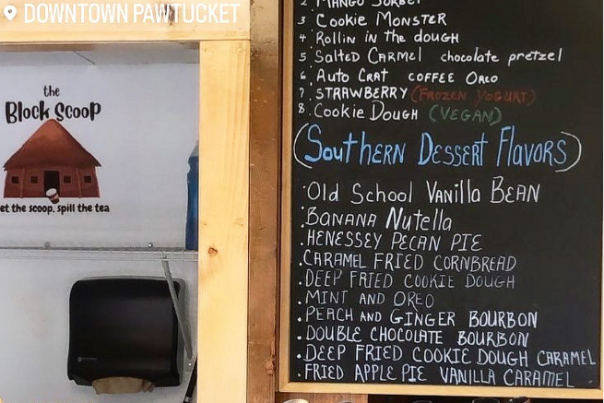 DOWNTOWN PAWTUCKET
the
Block Scoop
et the scoop, spill the tea
2. MANGO SORBET
3 Cookie MONSTER
4 Rollin in the dough
5 Salted Carmel chocolate pretzel
6. Auto Crat COFFEE Oreo
7. STRAWBERRY (FROZEN YOGURT)
8. Cookie Dough (VEGAN)
(Southern Dessert Flavors)
·Old School Vanilla BEAN
·BANANA Nutella
·HENESSEY PECAN PIE
·CARAMEL FRIED CORNBREAD
·DEEP FRIED COOKIE DOUGH
·MINT AND OREO
·PEACH AND GINGER BOURBON
·DOUBLE CHOCOLATE BOURBON
·DEEP FRIED COOKIE DOUGH CARAMEL
·FRIED APPLE PIE VANILLA CARAMEL